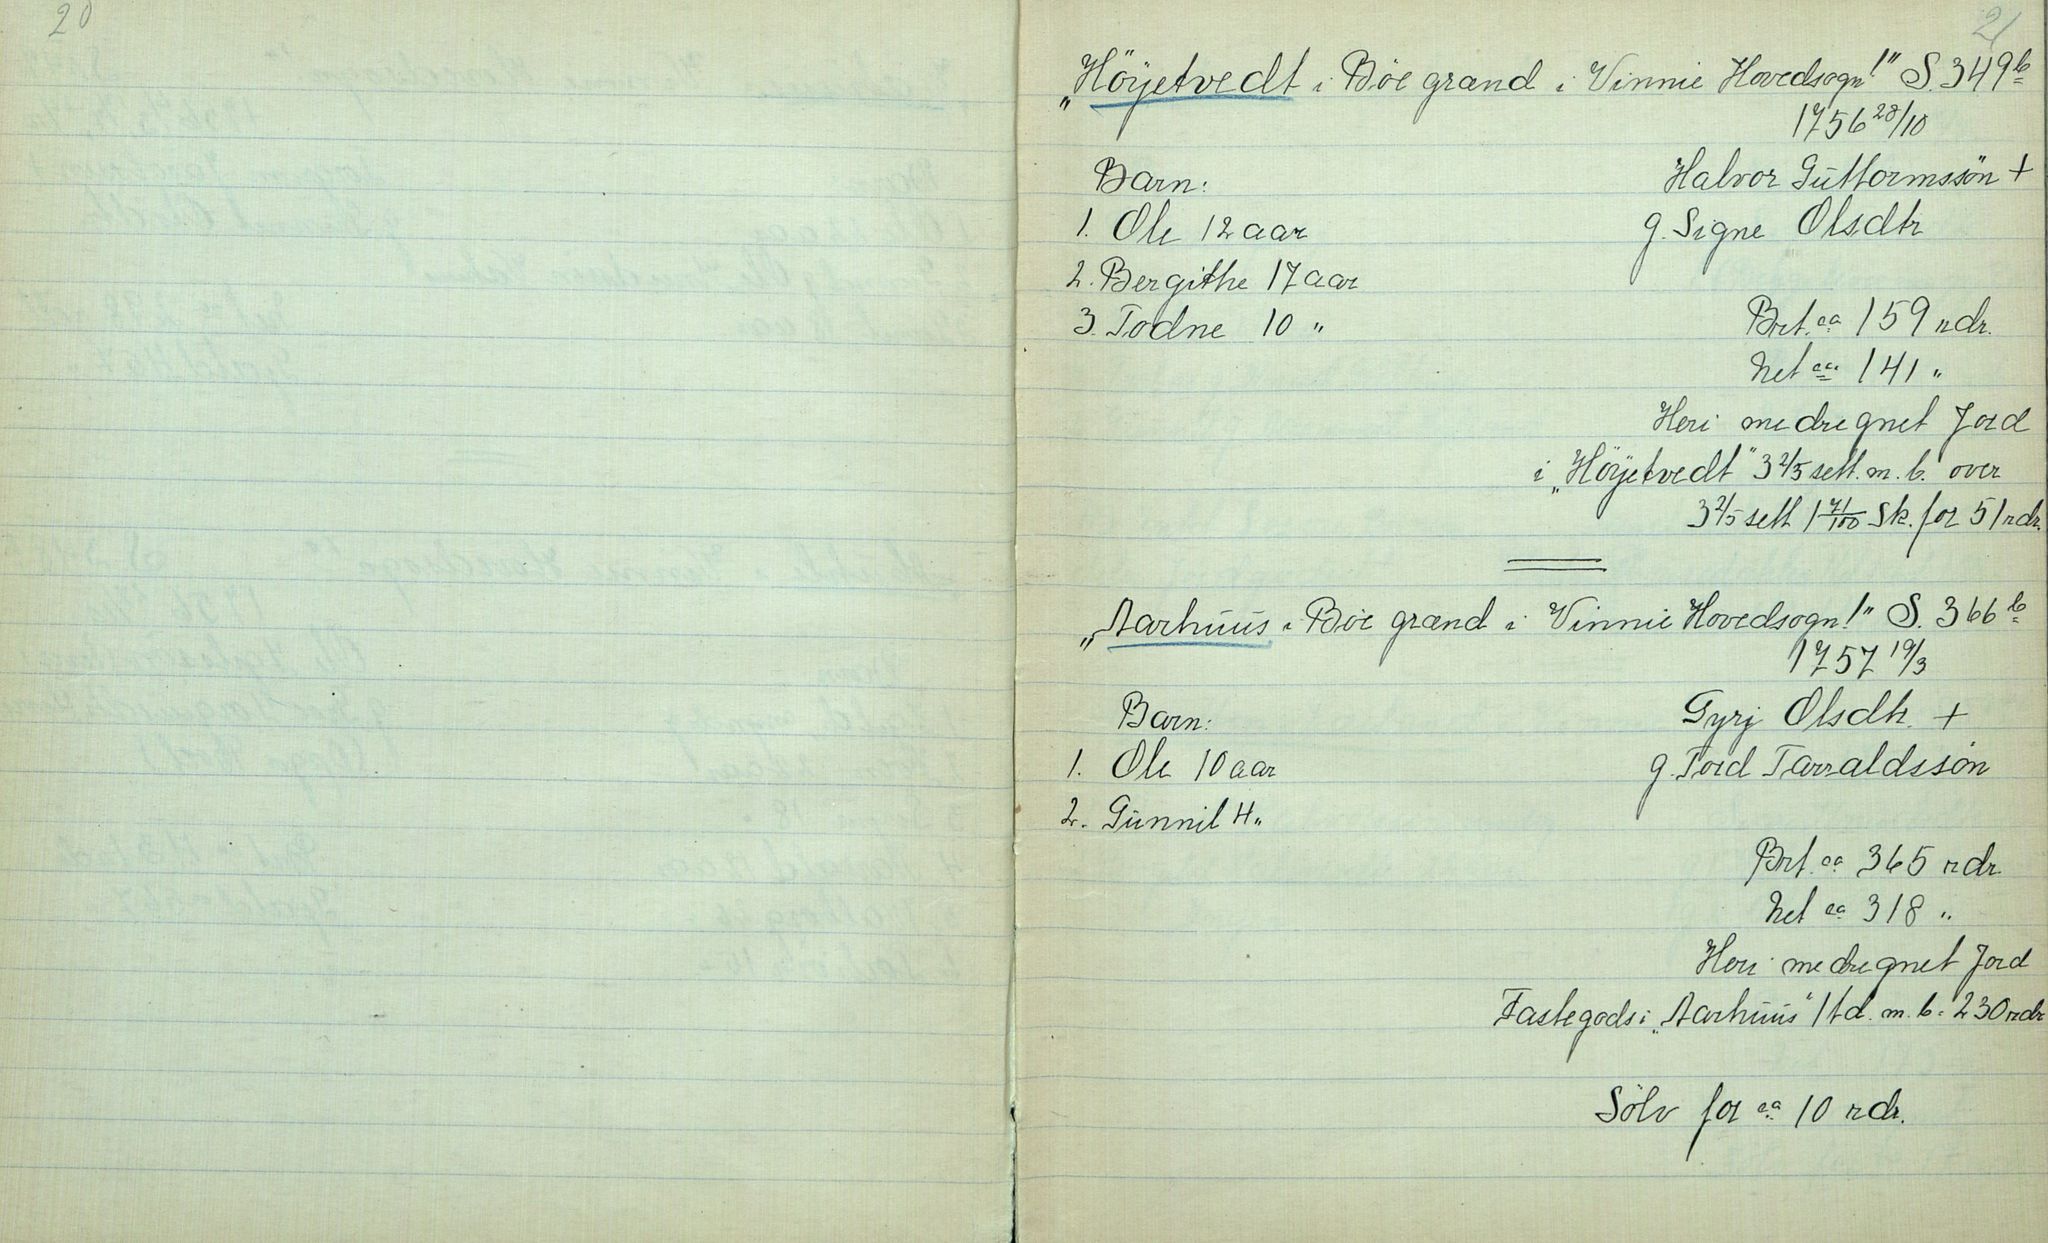 20
21
„Höÿetvedt i Böe grænd i Vinnie Hovedsogn!" S. 349b
1756 28/10
Barn:
Halvor Guttormssön +
1. Ole 12 aar
g. Signe Olsdtr
2. Bergithe 17 aar
3. Todne 10 "
Brt. ca 159 rdr.
Net ca 141 "
Heri medregnet Jord
i „Höÿetvedt" 3 2/5 sett. m. b. over
3 2/5 sett 1 71/100 Sk. for 51 rdr.
„Aarhuus i Böe grænd i Vinnie Hovedsogn!" S. 366b
1757 19/3
Barn:
Gyrj Olsdtr. +
1. Ole 10 aar
g. Tord Tarraldssön
2. Gunnil 4 "
Brt. ca 365 rdr.
Net ca 318 "
Heri medregnet Jord
Fastegods i „Aarhuus" 1 td. m. b. 230 rdr
Sölv for ca 10 rdr.